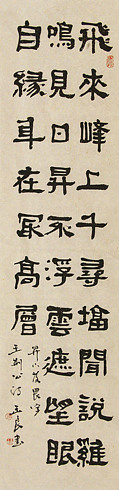 飛來峰上千尋塔聞說雞
鳴見日升不浮雲遮望眼
自緣身在最高層
畏字
王荊公詩 王良書